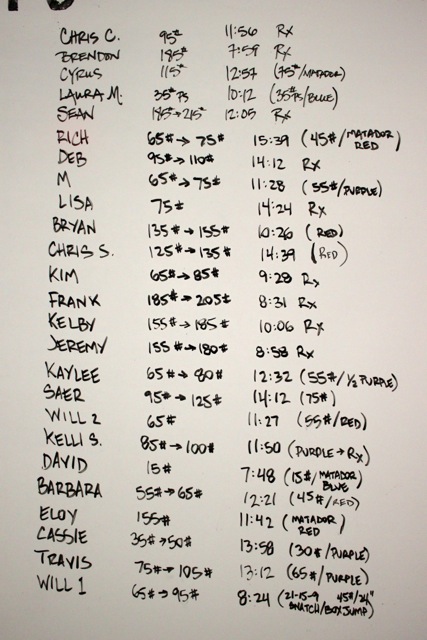 CHRIS C. 95# 11:56 Rx
BRENDON 185# 7:59 Rx
CYRUS 115# 12:57 (75#/MATADOR)
LAURA M. 35# PS 10:12 (35#PS/BLUE)
SEAN 185#→215# 12:05 Rx
RICH 65#→75# 15:39 (45#/MATADOR RED)
DEB 95#→110# 14:12 Rx
M 65#→75# 11:28 (55#/PURPLE)
LISA 75# 14:24 Rx
BRYAN 135#→155# 10:26 (RED)
CHRIS S. 125#→135# 14:39 (RED)
KIM 65#→85# 9:28 Rx
FRANK 185#→205# 8:31 Rx
KELBY 155#→185# 10:06 Rx
JEREMY 155#→180# 8:58 Rx
KAYLEE 65#→80# 12:32 (55#/½ PURPLE)
SAER 95#→125# 14:12 (75#)
WILL 2 65# 11:27 (55#/RED)
KELLI S. 85#→100# 11:50 (PURPLE→Rx)
DAVID 15# 7:48 (15#/MATADOR BLUE)
BARBARA 55#→65# 12:21 (45#/RED)
ELOY 155# 11:42 (MATADOR RED)
CASSIE 35#→50# 13:58 (30#/PURPLE)
TRAVIS 75#→105# 13:12 (65#/PURPLE)
WILL 1 65#→95# 8:24 (21-15-9 45#/24" SNATCH/BOX JUMP)